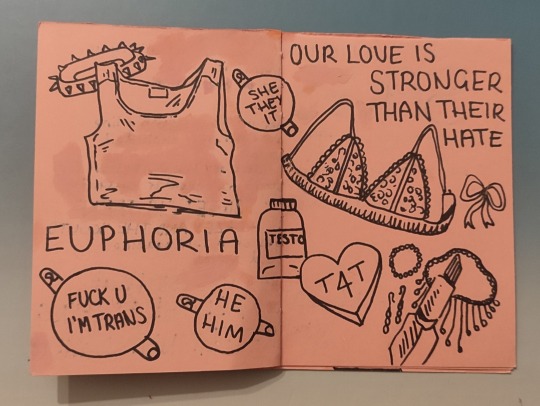 OUR LOVE IS
STRONGER
THAN THEIR
HATE
SHE
THEY
IT
EUPHORIA
TESTO
FUCK U
I'M TRANS
HE
HIM
T4T